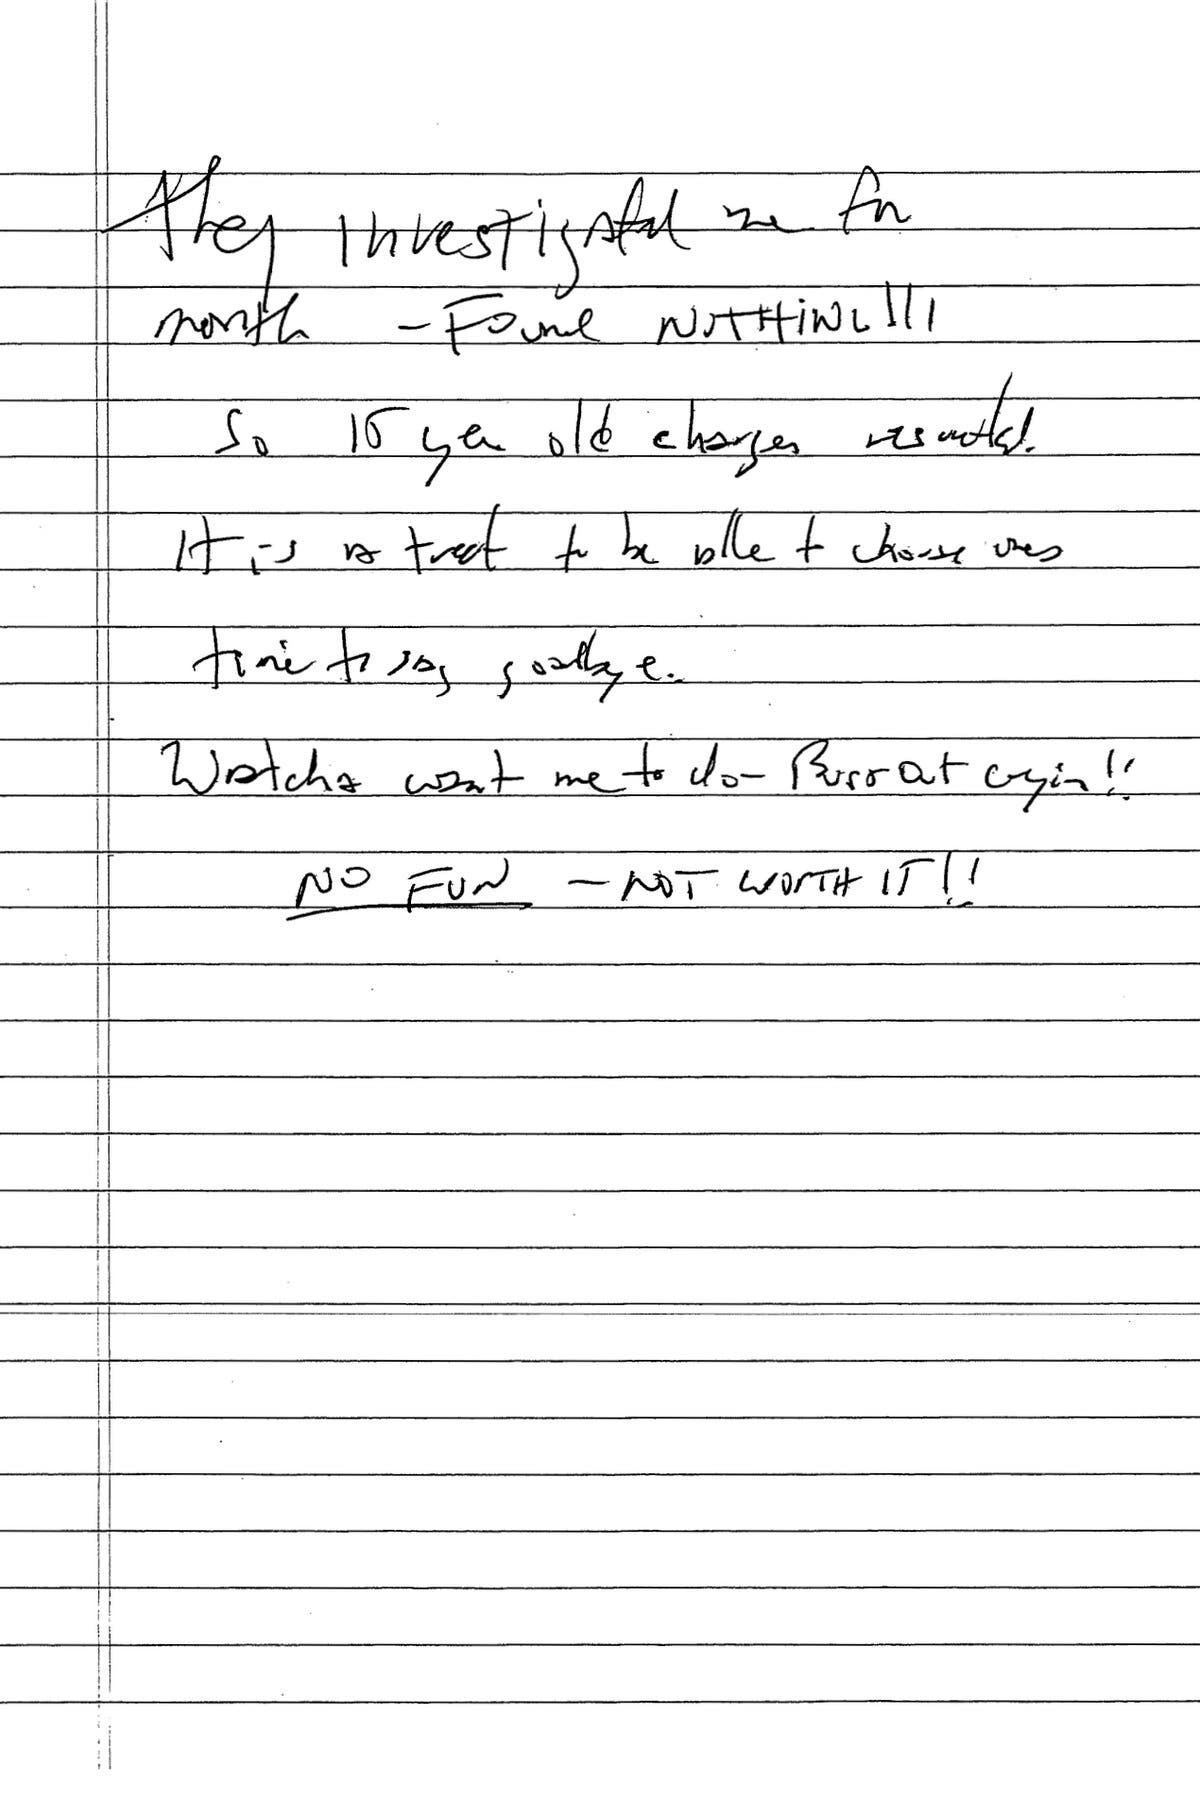 They investigated me for
month - Found NOTHING!!!
So 15 year old charges resulted.
It is a treat to be able to choose ones
time to say goodbye.
Watcha want me to do - Burst Out cryin!!
NO FUN - NOT WORTH IT!!